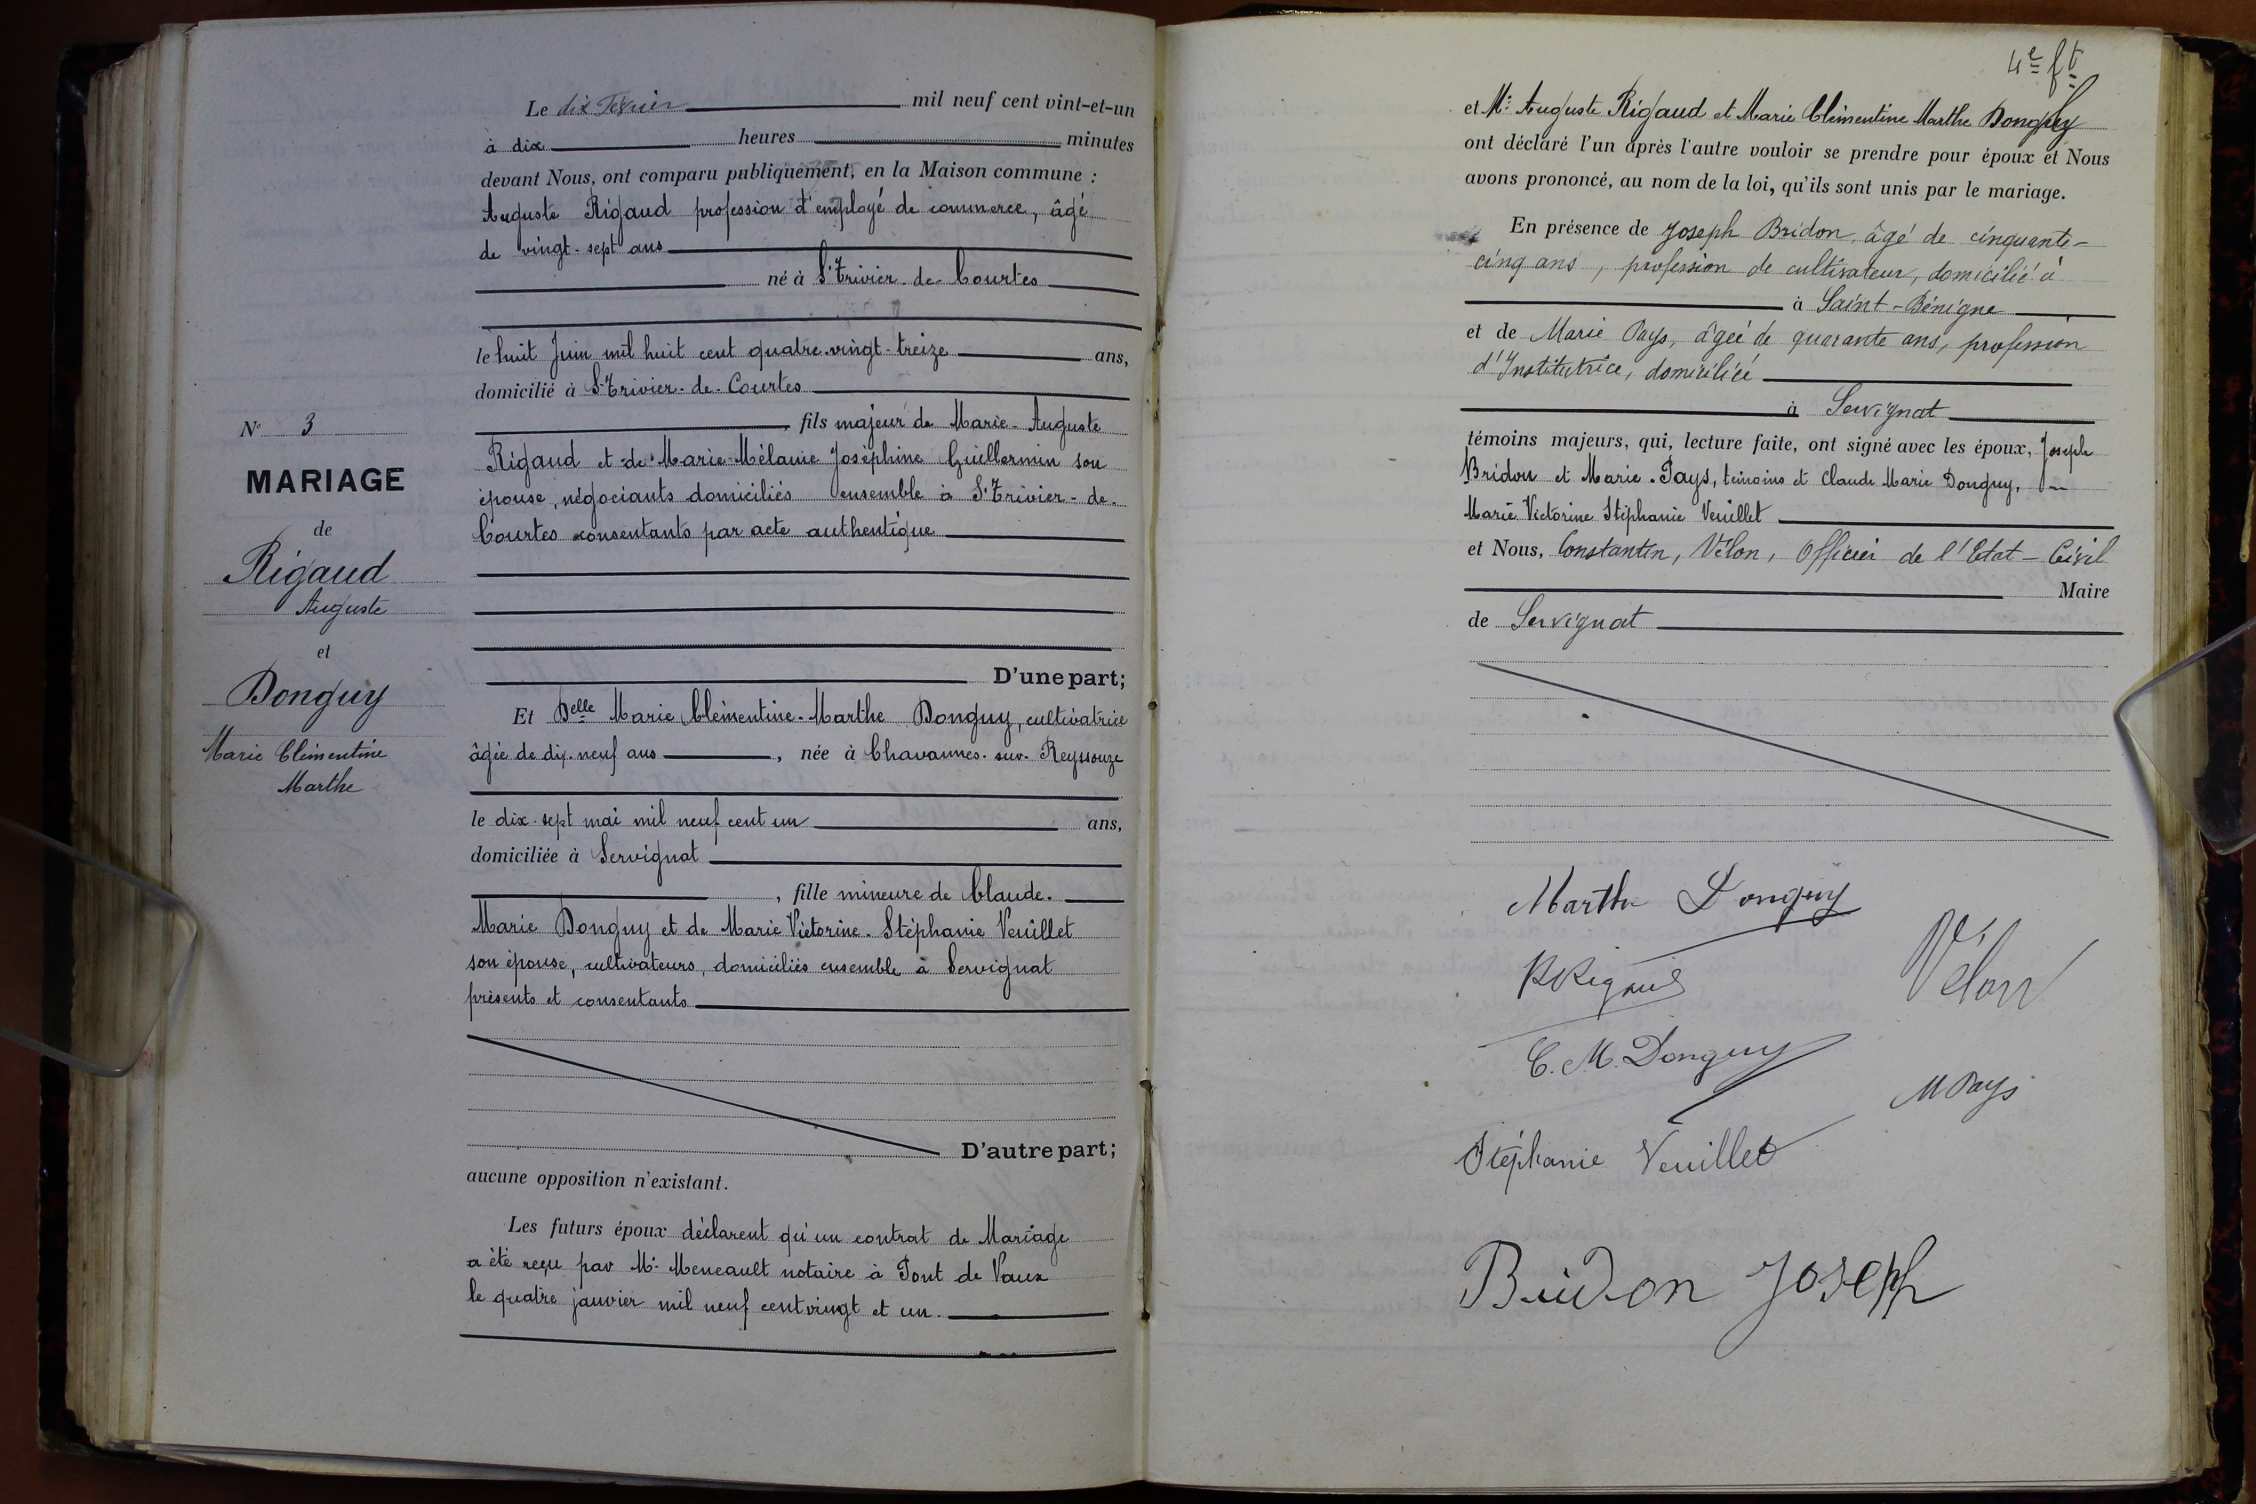 N° 3
MARIAGE
de
Rigaud
Auguste
et
Donguy
Marie Clémentine
Marthe
Le dix Février mil neuf cent vint-et-un
à dix heures minutes
devant Nous, ont comparu publiquement, en la Maison commune :
Auguste Rigaud profession d'employé de commerce, âgé
de vingt-sept ans
né à St Trivier-de-Courtes
le huit Juin mil huit cent quatre-vingt-treize ans,
domicilié à St Trivier-de-Courtes
, fils majeur de Marie-Auguste
Rigaud et de Marie-Mélanie Joséphine Guillermin son
épouse, négociants domiciliés ensemble à St Trivier-de-
Courtes consentants par acte authentique
D'une part;
Et Delle Marie Clémentine-Marthe Donguy, cultivatrice
âgée de dix-neuf ans, née à Chavannes-sur-Reyssouze
le dix-sept mai mil neuf cent un ans,
domiciliée à Servignat
, fille mineure de Claude-
Marie Donguy et de Marie Victorine-Stéphanie Veuillet
son épouse, cultivateurs, domiciliés ensemble à Servignat
présents et consentants
D'autre part;
aucune opposition n'existant.
Les futurs époux déclarent qu'un contrat de Mariage
a été reçu par Me Meneault notaire à Pont de Vaux
le quatre janvier mil neuf cent vingt et un.
4e ft
et Mr Auguste Rigaud et Marie Clémentine Marthe Donguy
ont déclaré l'un après l'autre vouloir se prendre pour époux et Nous
avons prononcé, au nom de la loi, qu'ils sont unis par le mariage.
En présence de Joseph Bridon, âgé de cinquante-
cinq ans, profession de cultivateur, domicilié à
à Saint-Bénigne
et de Marie Pays, âgée de quarante ans, profession
d'Institutrice, domiciliée
à Servignat
témoins majeurs, qui, lecture faite, ont signé avec les époux, Joseph
Bridon et Marie Pays, témoins et Claude Marie Donguy,
Marie Victorine Stéphanie Veuillet
et Nous, Constantin, Vélon, Officier de l'Etat-Civil
Maire
de Servignat
Marthe Donguy
Rigaud
Vélon
C. M. Donguy
M Pays
Stéphanie Veuillet
Bridon Joseph